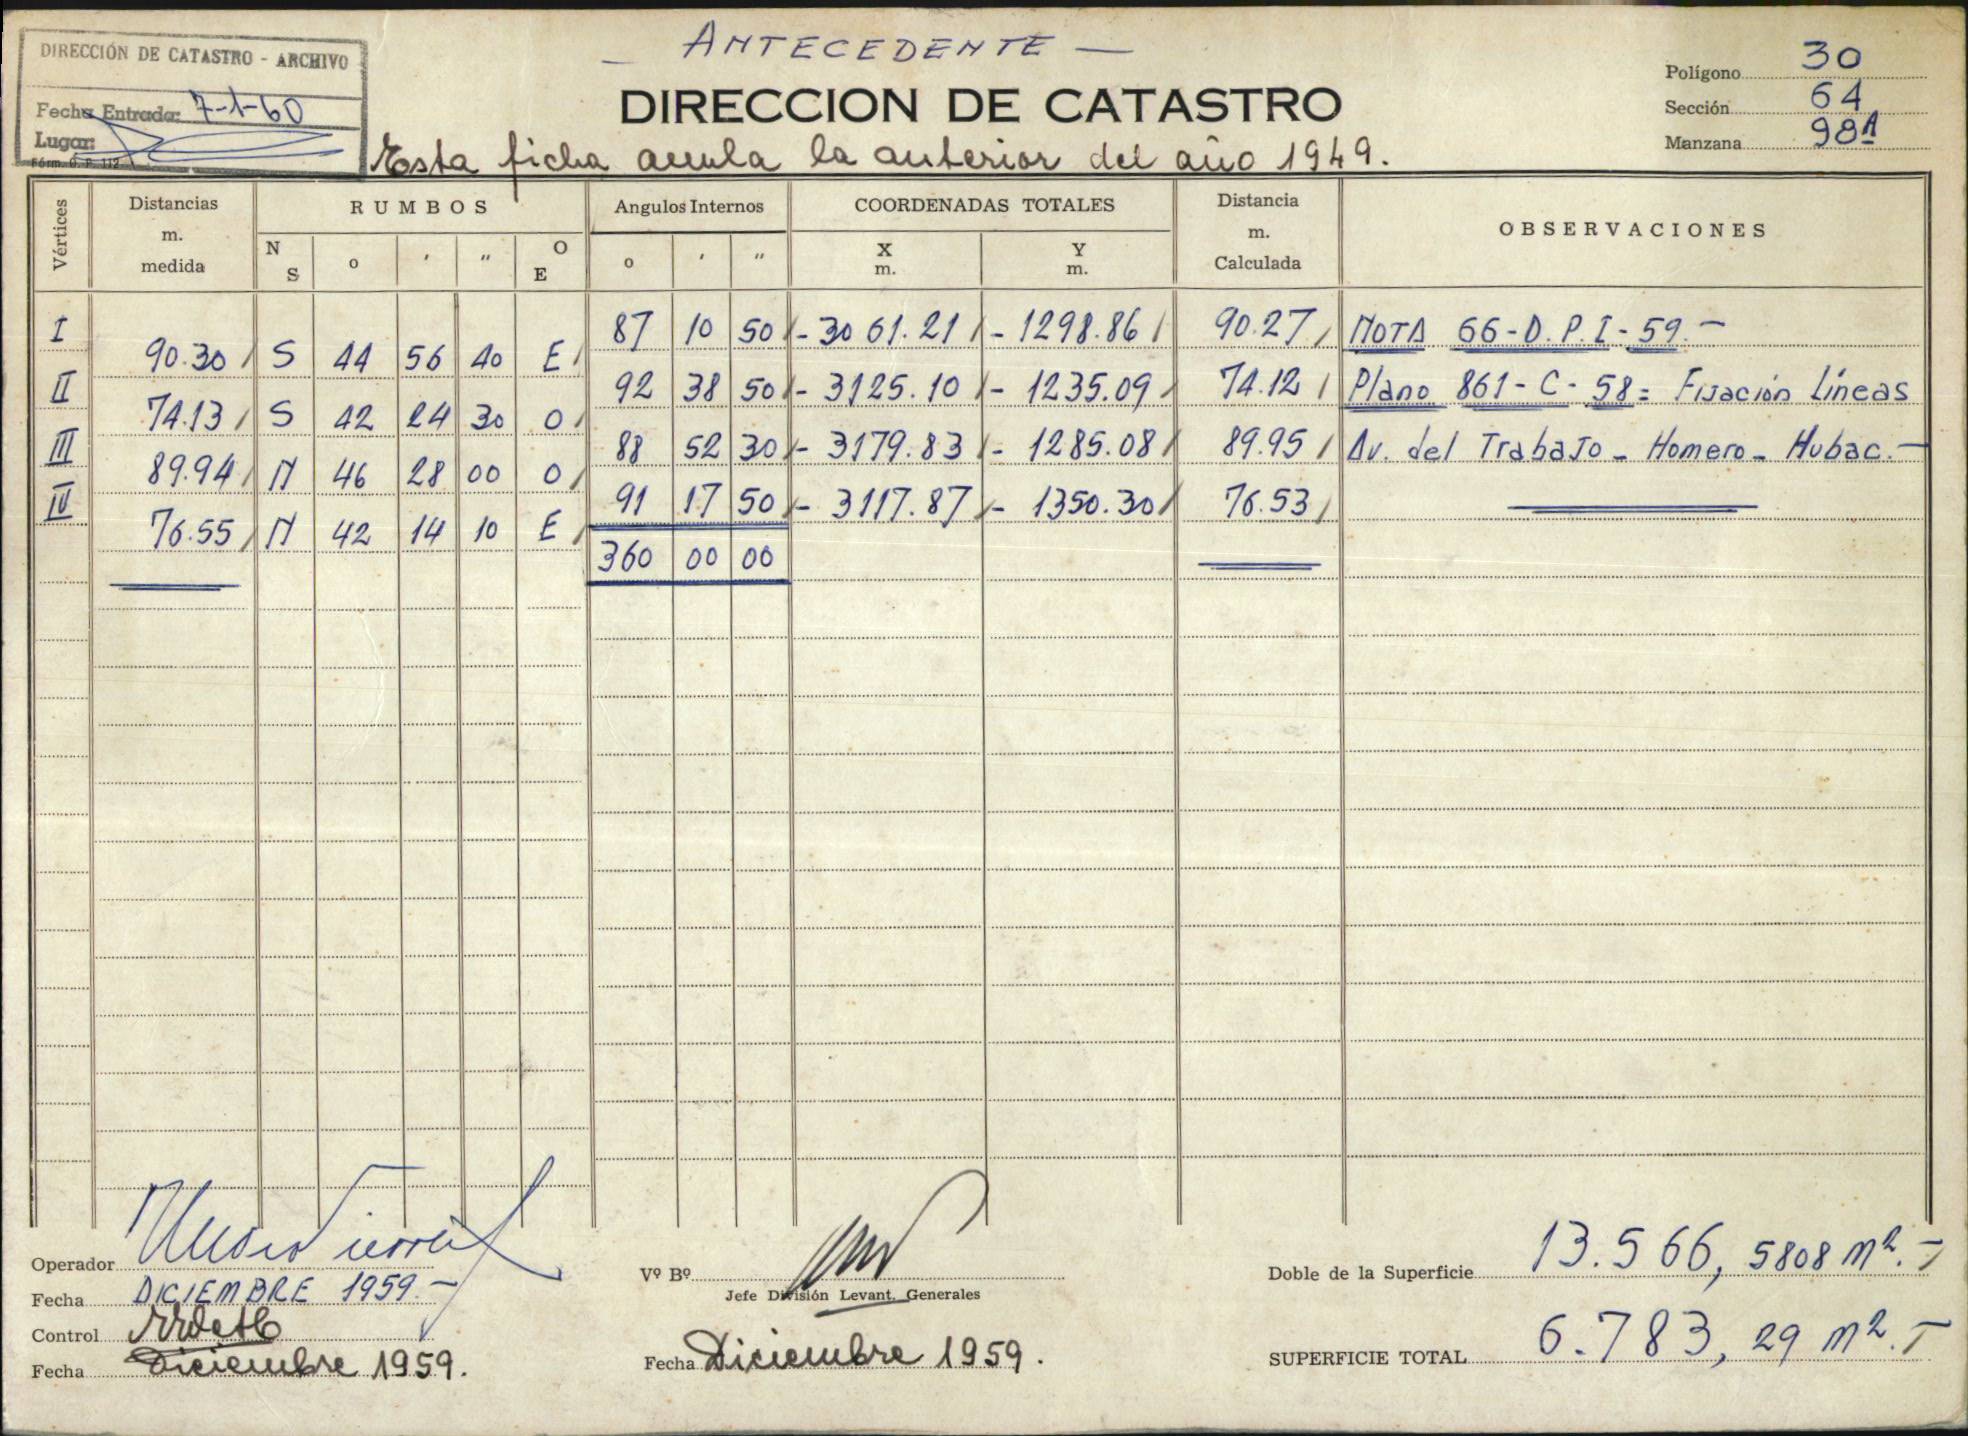 ANTECEDENTE —
DIRECCIÓN DE CATASTRO - ARCHIVO
Fecha Entrada: 7-1-60
Lugar:
Fórm. G. P. 112
DIRECCION DE CATASTRO
Polígono 30
Sección 64
Manzana 98A
Esta ficha anula la anterior del año 1949.
Vértices
Distancias m. medida
RUMBOS
N S o ' " O E
Angulos Internos
o ' "
COORDENADAS TOTALES
X m. Y m.
Distancia m. Calculada
OBSERVACIONES
I 87 10 50 - 3061.21 - 1298.86 90.27 NOTA 66-D.P.I-59.-
90.30 S 44 56 40 E
II 92 38 50 - 3125.10 - 1235.09 74.12 Plano 861-C-58= Fijación Líneas
74.13 S 42 24 30 O
III 88 52 30 - 3179.83 - 1285.08 89.95 Av. del Trabajo - Homero - Hubac.-
89.94 N 46 28 00 O
IV 91 17 50 - 3117.87 - 1350.30 76.53
76.55 N 42 14 10 E
360 00 00
Operador
Fecha DICIEMBRE 1959.-
Control
Fecha Diciembre 1959.
Vº Bº
Jefe División Levant. Generales
Fecha Diciembre 1959.
Doble de la Superficie 13.566,5808 m².-
SUPERFICIE TOTAL 6.783,29 m².-